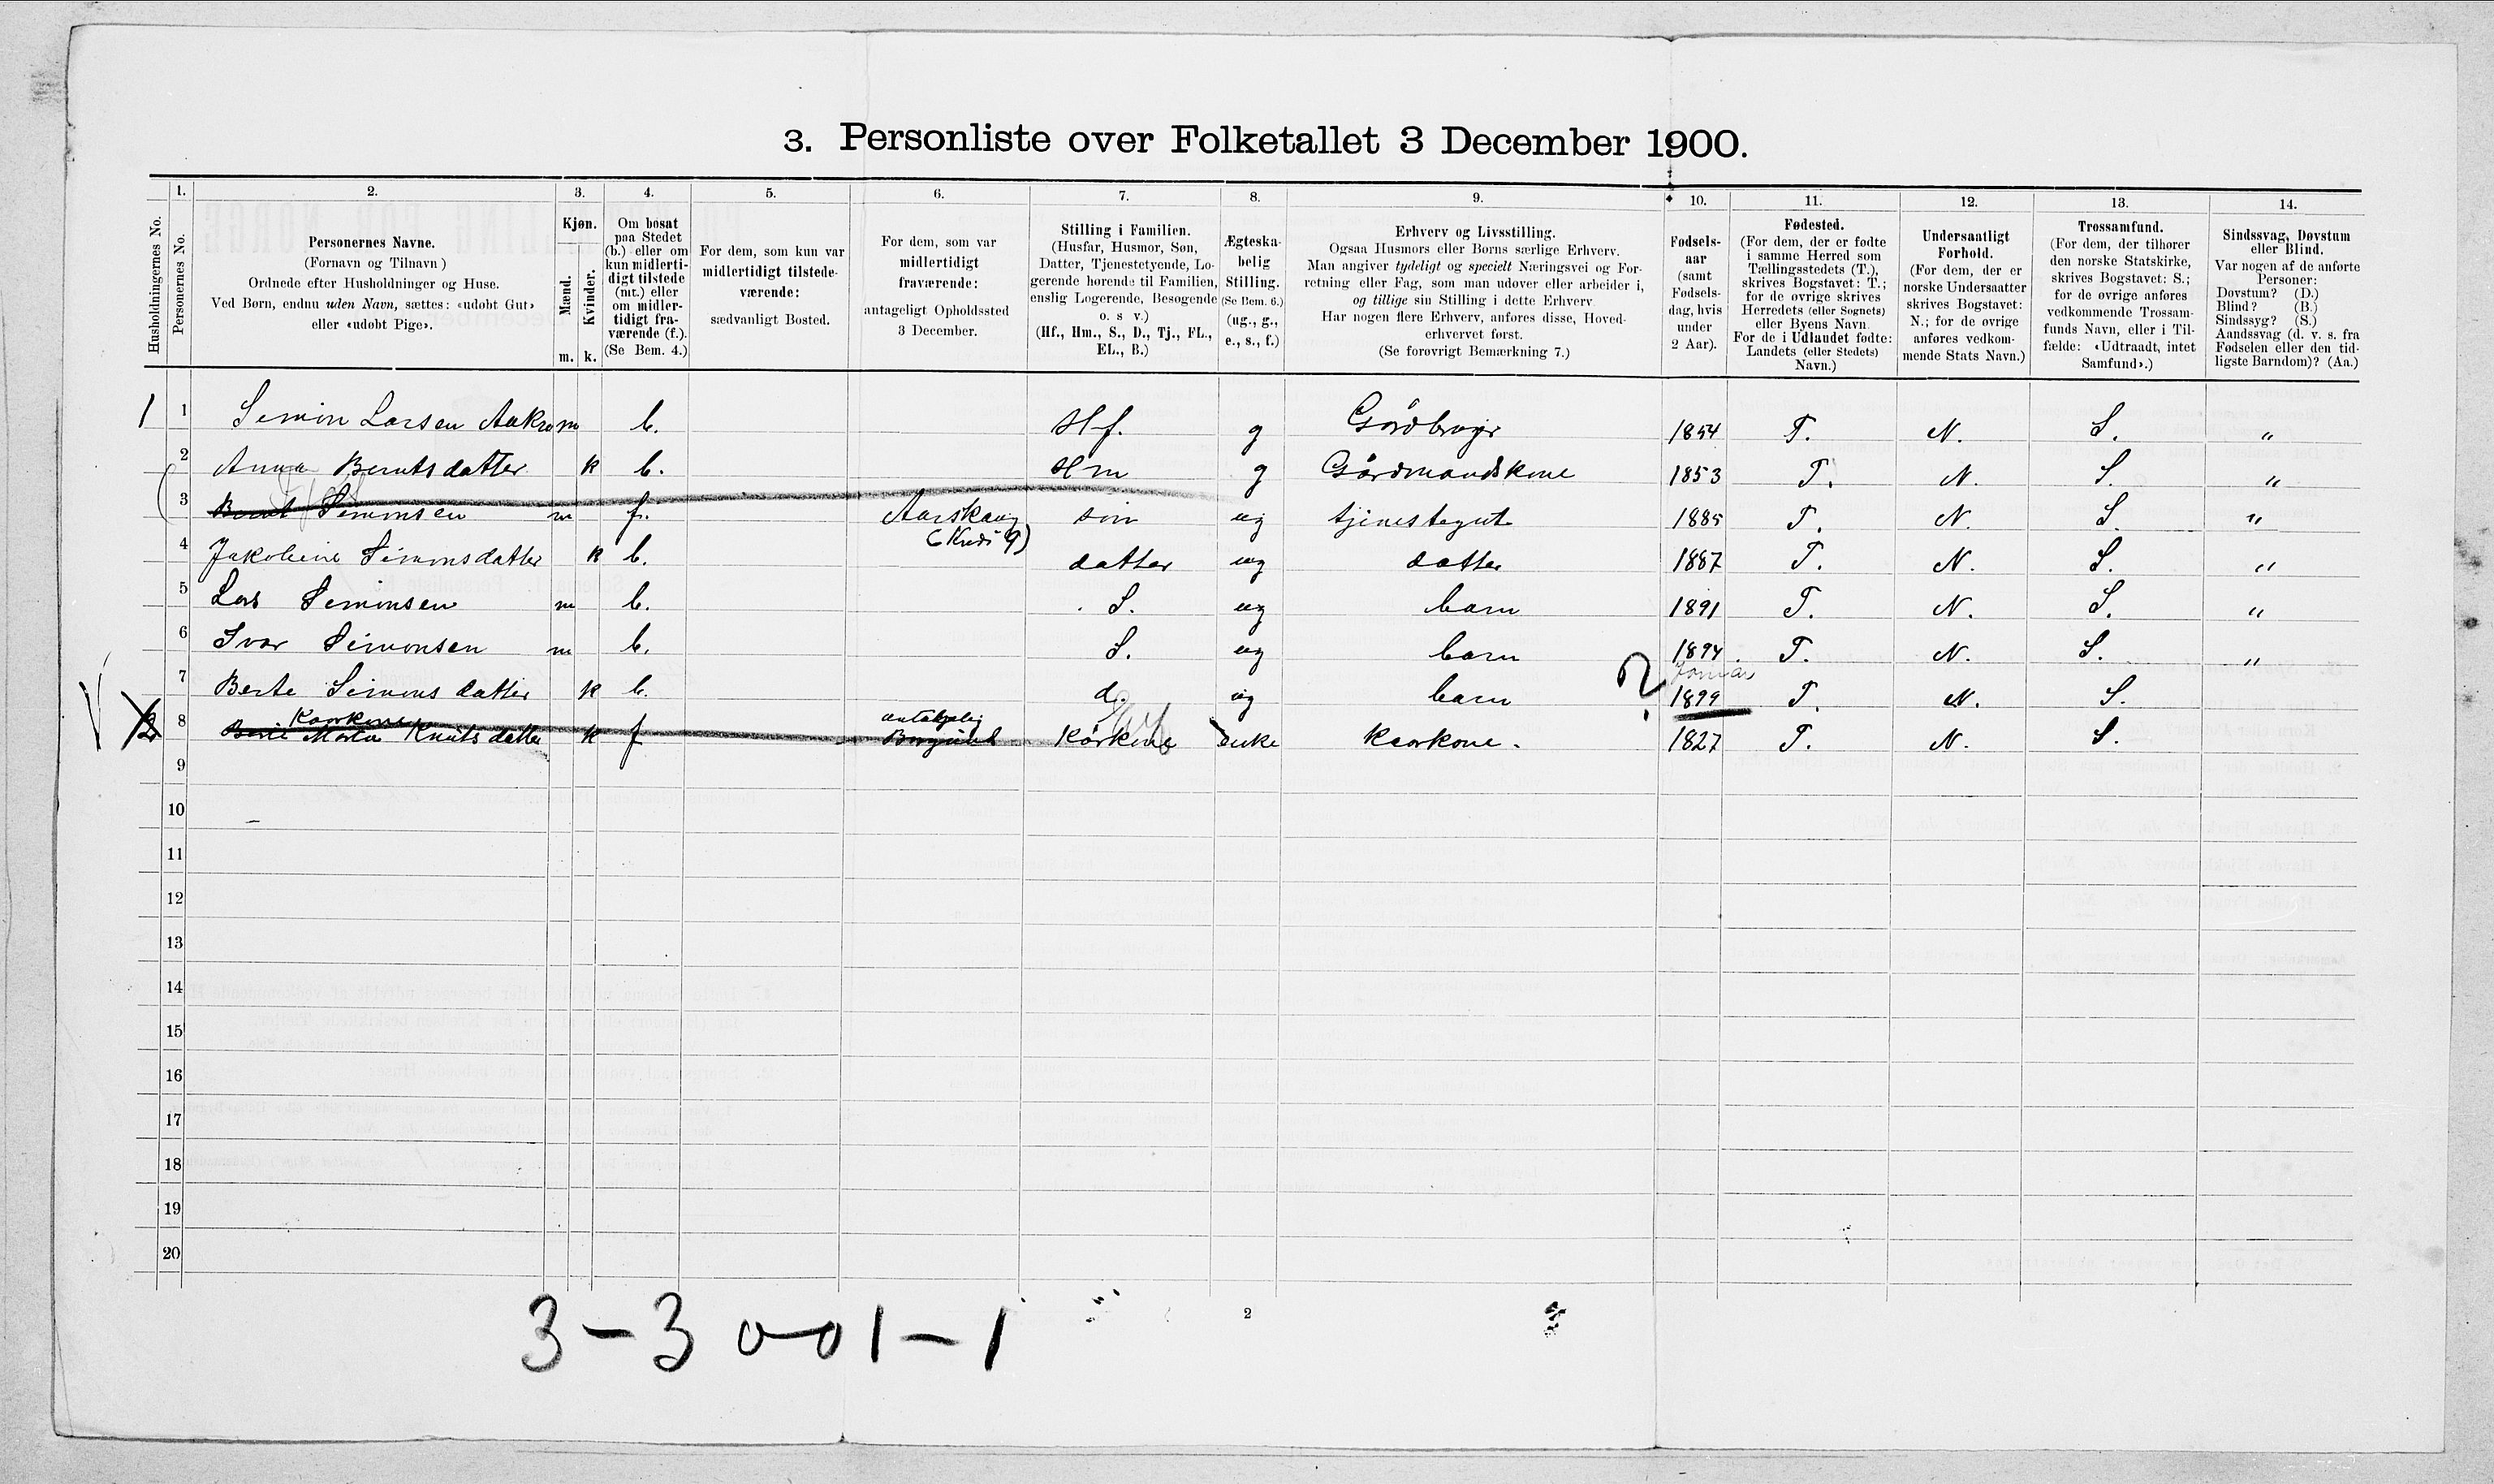 3. Personliste over Folketallet 3 December 1900.
1. 2. 3. 4. 5. 6. 7. 8. 9. 10. 11. 12. 13. 14.
Husholdningernes No.
Personernes No.
Personernes Navne.
(Fornavn og Tilnavn )
Ordnede efter Husholdninger og Huse.
Ved Børn, endnu uden Navn, sættes: «udøbt Gut»
eller «udøbt Pige».
Kjøn.
Mænd.
Kvinder.
m. k.
Om bosat
paa Stedet
(b.) eller om
kun midlerti-
digt tilstede
(mt.) eller
om midler-
tidigt fra-
værende (f.).
(Se Bem. 4.)
For dem, som kun var
midlertidigt tilstede-
værende:
sædvanligt Bosted.
For dem, som var
midlertidigt
fraværende:
antageligt Opholdssted
3 December.
Stilling i Familien.
(Husfar, Husmor, Søn,
Datter, Tjenestetyende, Lo-
gerende hørende til Familien,
enslig Logerende, Besøgende
o. s v.)
(Hf., Hm., S., D., Tj., FL.,
EL., B.)
Ægteska-
belig
Stilling.
(Se Bem. 6.)
(ug., g.,
e., s., f.)
Erhverv og Livsstilling.
Ogsaa Husmors eller Børns særlige Erhverv.
Man angiver tydeligt og specielt Næringsvei og For-
retning eller Fag, som man udøver eller arbeider i,
og tillige sin Stilling i dette Erhverv.
Har nogen flere Erhverv, anføres disse, Hoved-
erhvervet først.
(Se forøvrigt Bemærkning 7.)
Fødsels-
aar
(samt
Fødsels-
dag, hvis
under
2 Aar).
Fødested.
(For dem, der er fødte
i samme Herred som
Tællingsstedets (T.),
skrives Bogstavet: T.;
for de øvrige skrives
Herredets (eller Sognets)
eller Byens Navn.
For de i Udlandet fødte:
Landets (eller Stedets)
Navn.)
Undersaatligt
Forhold.
(For dem, der er
norske Undersaatter
skrives Bogstavet:
N.; for de øvrige
anføres vedkom-
mende Stats Navn.)
Trossamfund.
(For dem, der tilhører
den norske Statskirke,
skrives Bogstavet: S.;
for de øvrige anføres
vedkommende Trossam-
funds Navn, eller i Til-
fælde: «Udtraadt, intet
Samfund».)
Sindssvag, Døvstum
eller Blind.
Var nogen af de anførte
Personer:
Døvstum? (D.)
Blind? (B.)
Sindssyg? (S.)
Aandssvag (d. v. s. fra
Fødselen eller den tid-
ligste Barndom)? (Aa.)
1 1 Simon Larsen m b. Hf. g 1854 T. N. S. "
2 Anna Berntsdatter k b. Hm g Gårdmandskone 1853 T. N. S. "
3 Bernt Simonsen m f. Aarskaug søn ug tjenestegut 1885 T. N. S. "
4 Jakobine Simonsdatter k b. datter ug datter 1887 T. N. S. "
5 Lars Simonsen m b. S. ug barn 1891 T. N. S. "
6 Ivar Simonsen m b. S. ug barn 1894 T. N. S. "
Januar
7 Berte Simonsdatter k b. d. ug barn ? 1899 T. N. S.
Kaarkone antagelig
2 8 Marta Knutsdatter k f Borgund Kårkone enke Kaarkone. 1827 T. N. S.
9
10
11
12
13
14
15
16
17
18
19
20
3-3 0-01-1
2